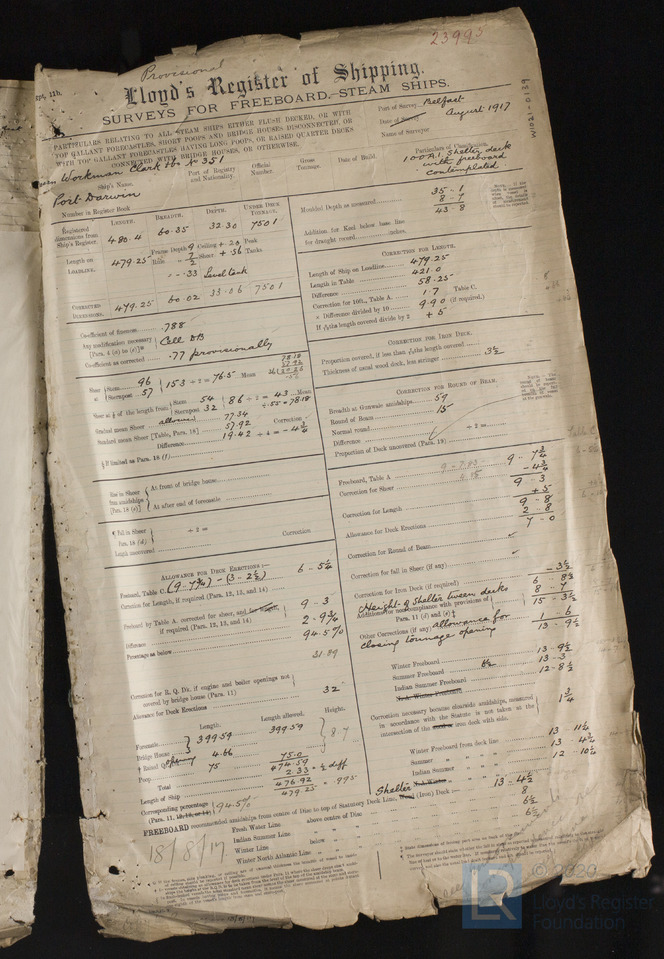 23995
Provisional
Lloyd's Register of Shipping.
SURVEYS FOR FREEBOARD.—STEAM SHIPS.
W021-0139
PARTICULARS RELATING TO ALL STEAM SHIPS EITHER FLUSH DECKED, OR WITH
TOP GALLANT FORECASTLES, SHORT POOPS AND BRIDGE HOUSES DISCONNECTED, OR
WITH TOP GALLANT FORECASTLES HAVING LONG POOPS, OR RAISED QUARTER DECKS
CONNECTED WITH BRIDGE HOUSES, OR OTHERWISE.
Port of Survey Belfast
Date of Survey August 1917
Name of Surveyor
Workman Clark No 351
Ship's Name.
Port of Registry and Nationality.
Official Number.
Gross Tonnage.
Date of Build.
Particulars of Classification.
100A1 Shelter deck
with freeboard
contemplated
Port Darwin
Number in Register Book
LENGTH. BREADTH. DEPTH. UNDER DECK TONNAGE.
Registered dimensions from Ship's Register. 480.4 60.35 32.30 7501
Length on LOADLINE. 479.25 Frame Depth 9 Ceiling + .20 Peak
Sheer + .56 Tanks
- .33 Level tank
CORRECTED DIMENSIONS. 479.25 60.02 33.06 7501
Coefficient of fineness .788
Any modification necessary [Para. 4 (d) to (e)] Cell DB
Coefficient as corrected .77 provisionally
Sheer at Stem 96 Sternpost 57 } 153 ÷ 2 = 76.5 Mean
Sheer at ⅛ of the length from Stem 54 Sternpost 32 } 86 ÷ 2 = 43 Mean
÷ .55 = 78.18
Gradual mean Sheer allowed 77.34
Standard mean Sheer [Table, Para. 18] 57.92 Correction
Difference 19.42 ÷ 4 = - 4¾
If limited as Para. 18 (f)
At front of bridge house
At after end of forecastle
[Para. 18 (e)]
Fall in Sheer
Para. 18 (d)
÷ 2 = Correction
Length uncovered
ALLOWANCE FOR DECK ERECTIONS:—
Freeboard, Table C. (9 - 7¾) - (3 - 2½) 6 - 5¼
Correction for Length, if required (Para. 12, 13, and 14)
Freeboard by Table A. corrected for sheer, and for length, if required (Para. 12, 13, and 14) 9 - 3
Difference 2 - 9¾
Percentage as below 94.5%
31.89
Correction for R. Q. Dk. if engine and boiler openings not covered by bridge house (Para. 11)
Allowance for Deck Erections 32
Length. Length allowed. Height.
Forecastle
Bridge House } 399.59 399.59 8.7
opening 4.66
Poop 75 75.0
Total 474.59
2.33 = ½ diff
476.92
Length of Ship 479.25 = .995
Corresponding percentage (Para. 11, 12, 13, or 14) 94.5%
Moulded Depth as measured 35 - 1
8 - 7
43 - 8
Addition for Keel below base line
for draught record inches.
CORRECTION FOR LENGTH.
Length of Ship on Loadline 479.25
Length in Table 421.0
Difference 58.25
Correction for 10ft., Table A. 1.7 Table C.
× Difference divided by 10 9.90 (if required.)
If 6/10ths length covered divide by 2 + 5
CORRECTION FOR IRON DECK.
Proportion covered, if less than 7/10ths length covered
Thickness of usual wood deck, less stringer 3½
CORRECTION FOR ROUND OF BEAM.
Breadth at Gunwale amidships 59
Round of Beam 15
Normal round
Difference ÷ 2 =
Proportion of Deck uncovered (Para. 19)
Freeboard, Table A 9 - 7¾
Correction for Sheer - 4¾
9 - 3
Correction for Length + 5
9 - 8
Allowance for Deck Erections 2 - 8
7 - 0
Correction for Round of Beam
Correction for fall in Sheer (if any)
Correction for Iron Deck (if required) - 3½
6 - 8½
Height of Shelter tween decks 8 - 7
Additions for non-compliance with provisions of Para. 11 (d) and (e) 15 - 3½
Other Corrections (if any) allowance for 1 - 6
closing tonnage opening 13 - 9½
Winter Freeboard 13 - 9½
Summer Freeboard 6½ 13 - 3
Indian Summer Freeboard 12 - 8½
N.A. Winter Freeboard
Correction necessary because clearside amidships, measured in accordance with the Statute is not taken at the intersection of the wood or iron deck with side. 1¾
Winter Freeboard from deck line 13 11¼
Summer " " " 13 - 4¾
Indian Summer " " " 12 10¼
N.A. Winter " " "
FREEBOARD recommended amidships from centre of Disc to top of Statutory Deck Line, Shelter (Iron) Deck 13 - 4½
Fresh Water Line above centre of Disc 8
Indian Summer Line " " 6½
Winter Line below " 6½
Winter North Atlantic Line " "
18/8/17
© 2020
Lloyd's Register
Foundation
LR